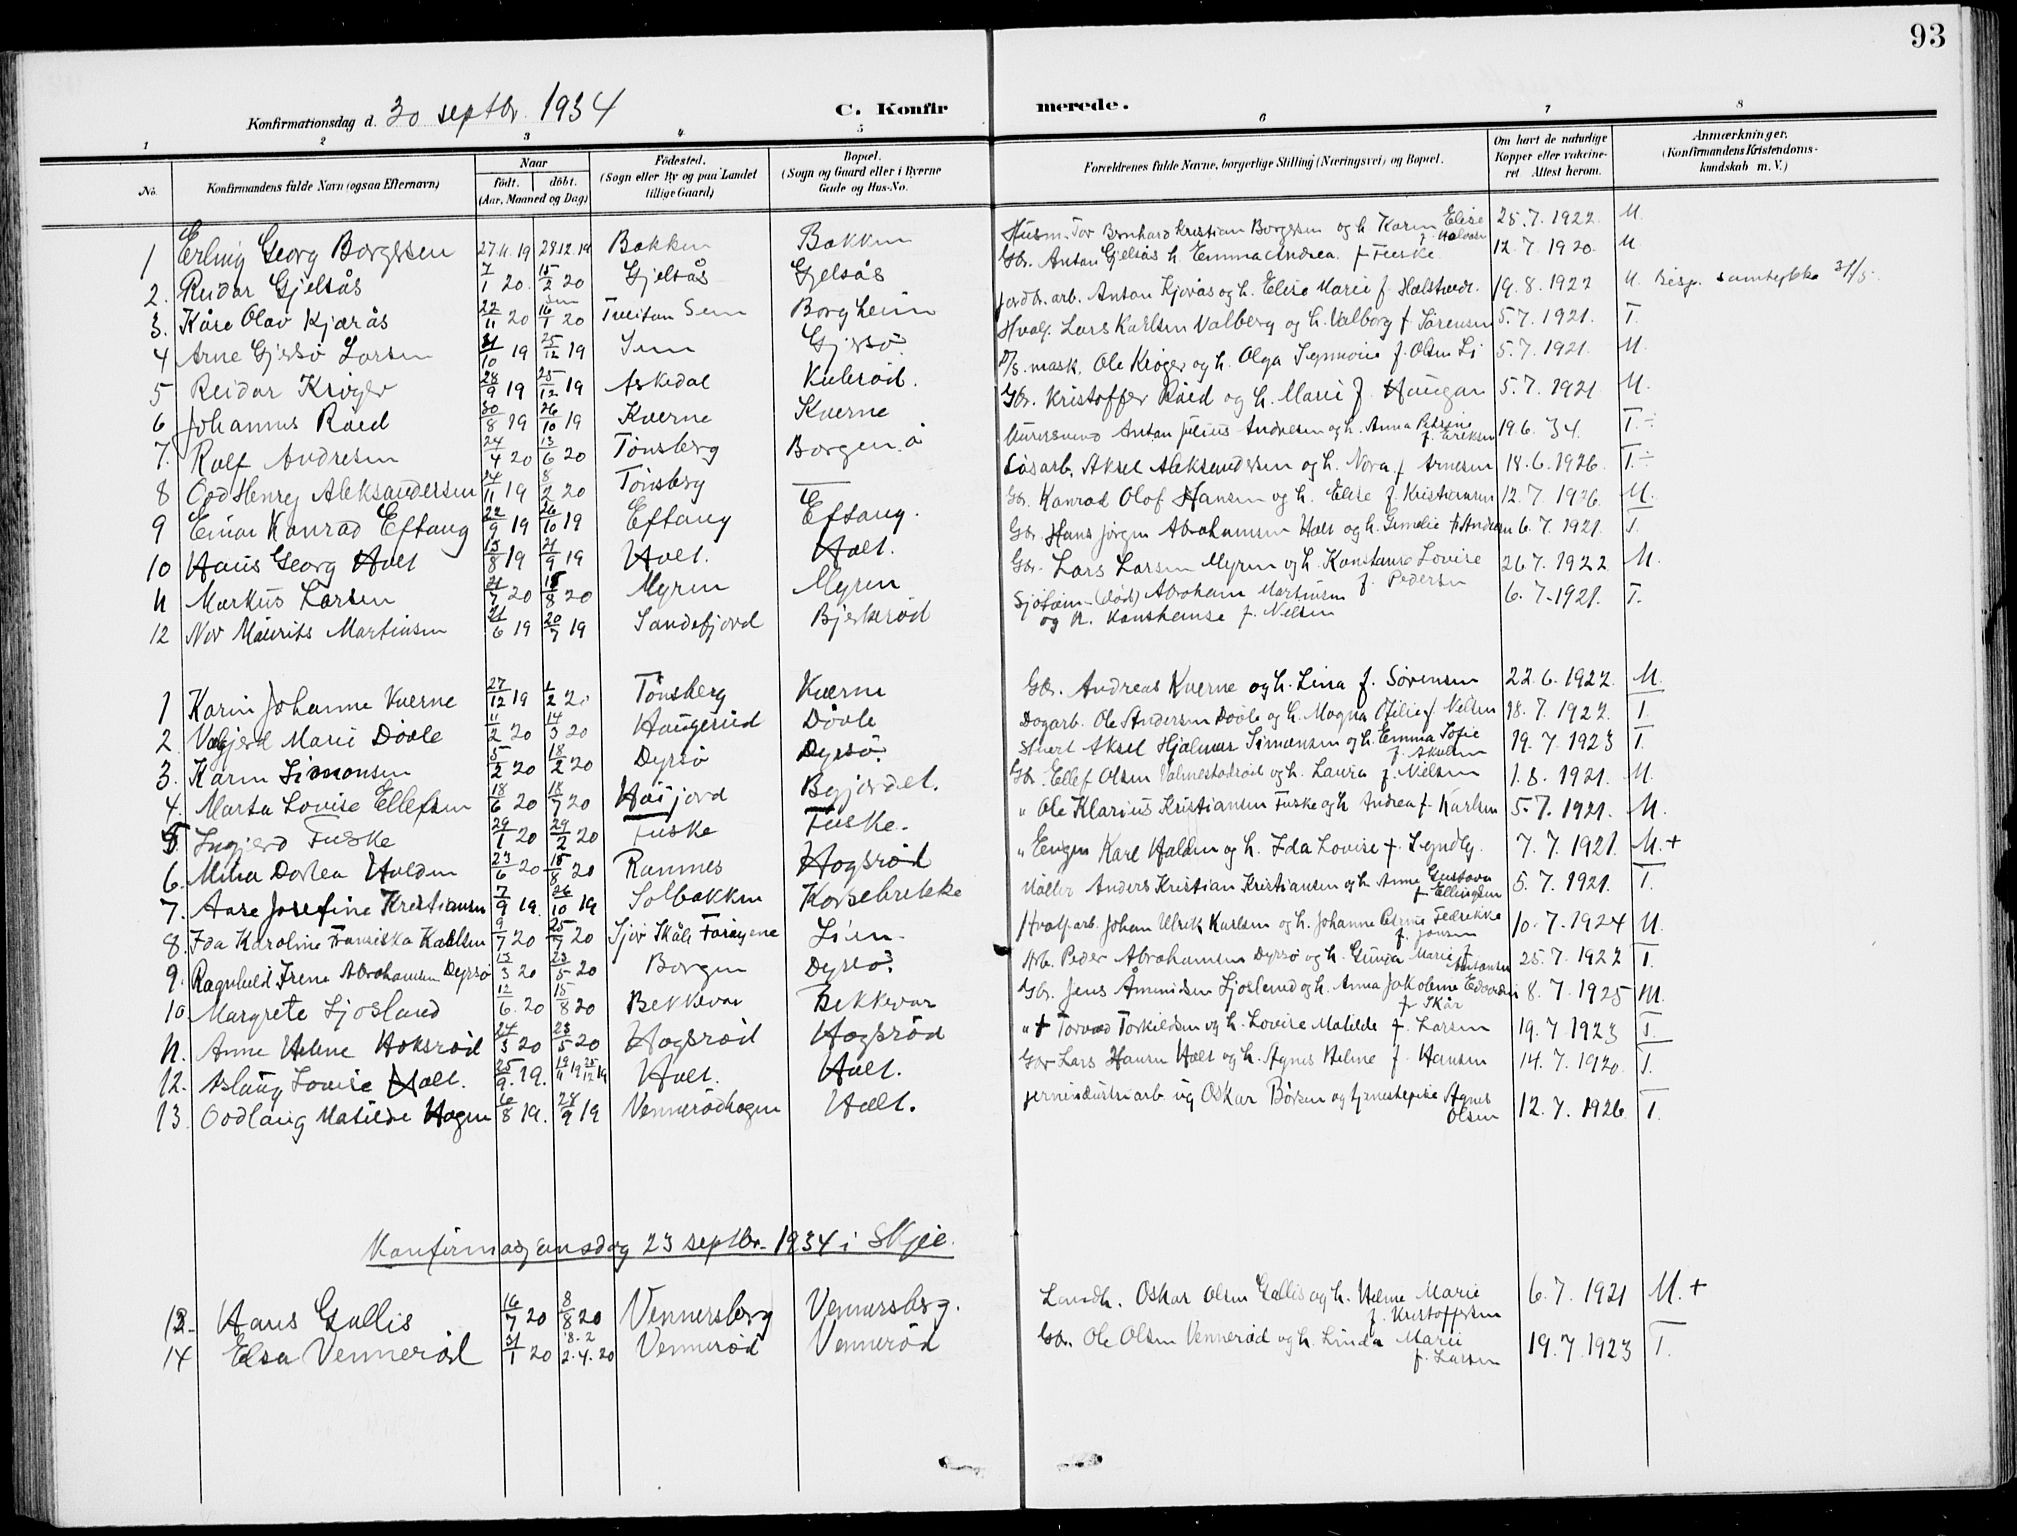 93
Konfirmationsdag d. 30 septbr. 1934 C. Konfirmerede.
1 2 3 4 5 6 7 8
No. Konfirmandens fulde Navn (ogsaa Efternavn) Naar født. døbt. (Aar, Maaned og Dag) Fødested. (Sogn eller By og paa Landet tillige Gaard) Bopæl. (Sogn og Gaard eller i Byerne Gade og Hus-No. Forældrenes fulde Navne, borgerlige Stilling (Næringsvei) og Bopæl. Om havt de naturlige Kopper eller vakcineret. Attest herom. Anmærkninger. (Konfirmandens Kristendomskundskab m. V.)
1 Erling Georg Borgersen 27 11 19 28 12 19 Bakken Bakken Husm. Tor Bernhard Kristian Borgersen og h. Karen Elise 25.7.1922. M.
2. Reidar Gjelsås 7/1 20. 15/2 20 Gjelsås Gjelsås Gbr. Anton Gjelsås h. Emma Andrea f. Fuske 12.7.1920. M
3. Kåre Olav Kjærås 22/11 20 16/1 20 Tveitan Sem Borgheim Jordbr. arb. Anton Kjærås og h. Elise Marie f. 19.8.1922 M. Bisp. samtykke 31/5.
4 Arne Gjersø Larsen 31/10 19 25/12 19 Sem Gjersø. Hvalf. Lars Karlsen Valberg og h. Valborg f. Sørensen 5.7.1921. T.
5 Reidar Krøger 28/9 19 25/12 19 Askedal Kulerød. mask. Ole Krøger og h. Olga f. Olsen 5.7.1921. M.
6 Johannes Råed 30/8 19 26/10 19 Kverne Kverne Gbr. Kristoffer Råed og h. Marie f. Haugan 5.7.1921 M.
7. Rolf Andresen 24/4 20 13/6 20 Tønsberg Borgen Anton Julius Andresen og h. Anna Petrine f. Eriksen 19 6. 34. T. ÷
8 Odd Henry Aleksandersen 24/11 19 8/2 20 Tønsberg — Løsarb. Aksel Aleksandersen og h. Nora f. Arnesen 18.6.1926. T. ÷
9 Einar Konrad Eftang 22/9 19 26/10 19 Eftang Eftang. Gbr. Konrad Olof Hansen og h. Elise f. Kristiansen 12.7.1926. M.
10 Hans Georg Holt 15/8 19 21/9 19 Holt. Holt. Gbr. Hans Jørgen Abrahamsen Holt og h. f. Andersen 6.7.1921. T.
11 Markus Larsen 21/7 20 15/8 20 Myren Myren Gbr. Lars Larsen Myren og h. Konstanse Lovise f. Pedersen 26.7.1922 M.
12 Nov Maurits Martinsen 21/6 19 20/7 19 Sandefjord Bjerkerød Sjøfam. (død) Abraham Martinsen og h. f. Nilsen 6.7.1921. T.
1 Karin Johanne Kverne 27/12 19 1/2 20 Tønsberg Kverne Gbr. Andreas Kverne og h. Lina f. Sørensen 22.6.1922. M.
2. Valgjerd Marie Døvle 11/2 20 14/3 20 Haugerud Døvle Dagarb. Ole Andersen Døvle og h. Magna Otilie f. Nelsen 18.7.1922. T.
3. Karin Simonsen 5/2 20 18/2 20 Dyrsø Dyrsø. Aksel Hjalmar Simonsen og h. Emma Sofie 19.7.1923 T.
4. Marta Lovise Ellefsen 18/6 20 18/7 20 Håsjord Bgjordet. Gbr. Ellef Olsen Valmestadrød og h. Laura f. Nielsen 1.8.1921. M.
5 Ingjerd Fuske 29/1 20 29/2 20 Fuske Fuske. " Ole Klarius Kristiansen Fuske og h. Andrea f. Karlsen 5.7.1921. M.
6. Mina Dortea Holden 23/6 20 15/8 20 Ramnes Hogsrød " Eugen Karl Holden og h. Ida Lovise f. 7.7.1921. M. +
7. Aase Josefine Kristiansen 7/9 19. 26/10 19 Solbakken Korsebrekke Møller Anders Kristian Kristiansen og h. Anne Gustava f. Ellingsen 5.7.1921. T.
8. Ida Karoline Franciska Karlsen 9/7 20 25/7 20 Sjøv Skåle Færøyene Lien. Hvalf. arb. Johan Ulrik Karlsen og h. Johanne Petrine Fedrikke f. Jonsen 10.7.1924 M.
9. Ragnhild Irene Abrahamsen Dyrsø 13/3 20 23/5 20 Borgen Dyrsø. Arb. Peder Abrahamsen Dyrsø og h. Gunda Marie f. Antonsen 25.7.1922 T.
10 Margrete Ljosland 12/6. 20 15/8 20 Bekkevar Bekkevar Gbr. Jens Åmundsen Ljosland og h. Anna Jakobine f. Skår 8.7.1925 M.
11. Anne Helene Hoksrød 24/3 20 23/5 20 Hogsrød Hogsrød " + Torvald Torkildsen og h. Lovise Matilde f. Larsen 19.7.1923 T.
12. Aslaug Lovise Holt. 25/9. 19. 19/11 19 25/12 19 Holt. Holt. Gbr Lars Hansen Holt og h. Agnes Helene f. Hansen 14.7.1920. T.
13. Oddlaug Matilde Hagen 6/8 19. 28/9 19 Vennerødhagen Holt. jernindustriarb. ug Oskar Børsen og tjenestepike Agnes Olsen 12.7.1926. T.
Konfirmasjonsdag 23 septbr. 1934 i Skjee.
13. Hans Gallis 16/7 20 8/8 20 Vennersberg Vennersberg. Landh. Oskar Olsen Gallis og h. Helene Marie f. Kristoffersen 6.7.1921 M. +
14 Elsa Vennerød 31/1 20 8.2 2.4.20 Vennerød Vennerød Gbr. Ole Olsen Vennerød og h. Linda Marie f. Larsen 19.7.1923 T.